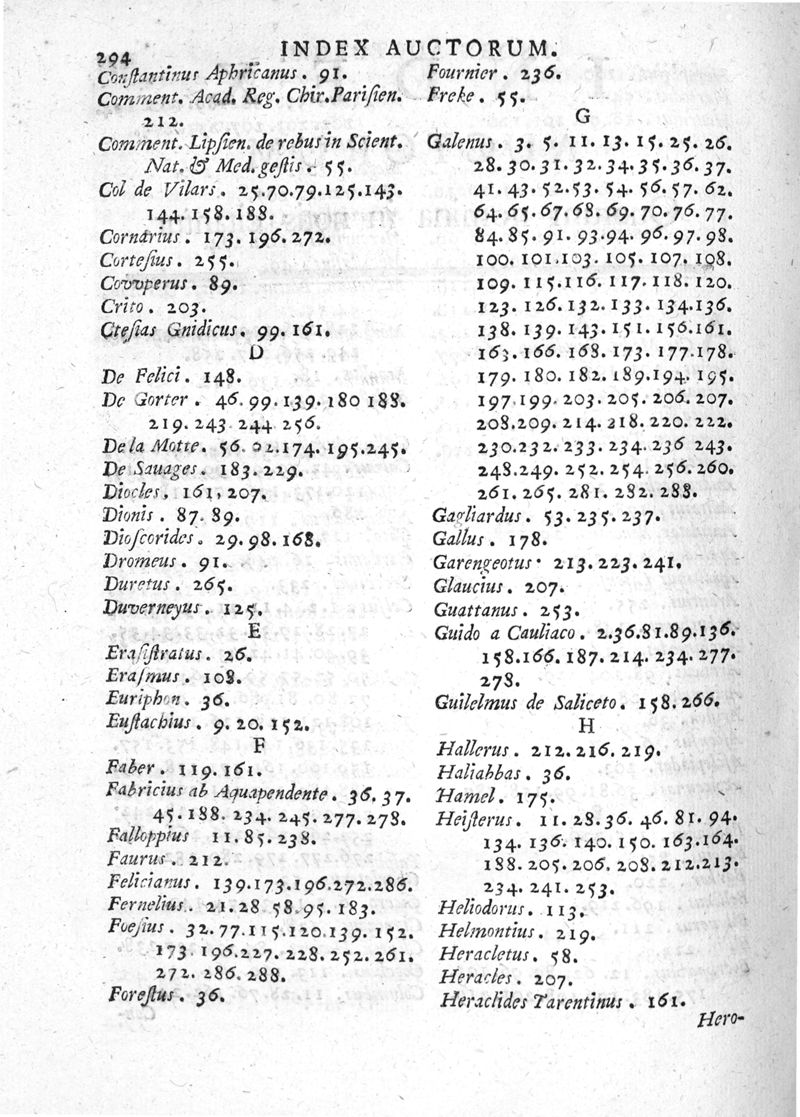 294
INDEX AUCTORUM.
Conſtantinus Aphricanus. 91.
Comment. Acad. Reg. Chir. Pariſien.
212.
Comment. Lipſien. de rebus in Scient.
Nat. & Med. geſtis. 55.
Col de Vilars. 25.70.79.125.143.
144.158.188.
Cornarius. 173. 196.272.
Corteſius. 255.
Covvperus. 89.
Crito. 203.
Cteſias Gnidicus. 99.161.
D
De Felici. 148.
De Gorter. 46.99.139.180 188.
219.243 244 256.
De la Motte. 56. 174. 195.245.
De Sauages. 183.229.
Diocles. 161, 207.
Dionis. 87.89.
Dioſcorides. 29.98.168.
Dromeus. 91.
Duretus. 265.
Duverneyus. 125.
E
Eraſiſtratus. 26.
Eraſmus. 108.
Euriphon. 36.
Euſtachius. 9.20.152.
F
Faber. 119.161.
Fabricius ab Aquapendente. 36.37.
45.188.234.245.277.278.
Falloppius 11.85.238.
Faurus. 212.
Felicianus. 139.173.196.272.286.
Fernelius. 21.28.58.95.183.
Foeſius. 32.77.115.120.139.152.
173.196.227.228.252.261.
272.286.288.
Foreſtus. 36.
Fournier. 236.
Freke. 55.
G
Galenus. 3. 5. 11. 13. 15. 25. 26.
28.30.31.32.34.35.36.37.
41.43.52.53.54.56.57.62.
64.65.67.68.69.70.76.77.
84.85.91.93.94.96.97.98.
100.101.103.105.107.108.
109.115.116.117.118.120.
123.126.132.133.134.136.
138.139.143.151.156.161.
163.166.168.173.177.178.
179.180.182.189.194.195.
197.199.203.205.206.207.
208.209.214.218.220.222.
230.232.233.234.236 243.
248.249.252.254.256.260.
261.265.281.282.288.
Gagliardus. 53.235.237.
Gallus. 178.
Garengeotus. 213.223.241.
Glaucius. 207.
Guattanus. 253.
Guido a Cauliaco. 2.36.81.89.136.
158.166.187.214.234.277.
278.
Guilelmus de Saliceto. 158.266.
H
Hallerus. 212.216.219.
Haliabbas. 36.
Hamel. 175.
Heiſterus. 11.28.36.46.81.94.
134.136.140.150.163.164.
188.205.206.208.212.213.
234.241.253.
Heliodorus. 113.
Helmontius. 219.
Heracletus. 58.
Heracles. 207.
Heraclides Tarentinus. 161.
Hero-